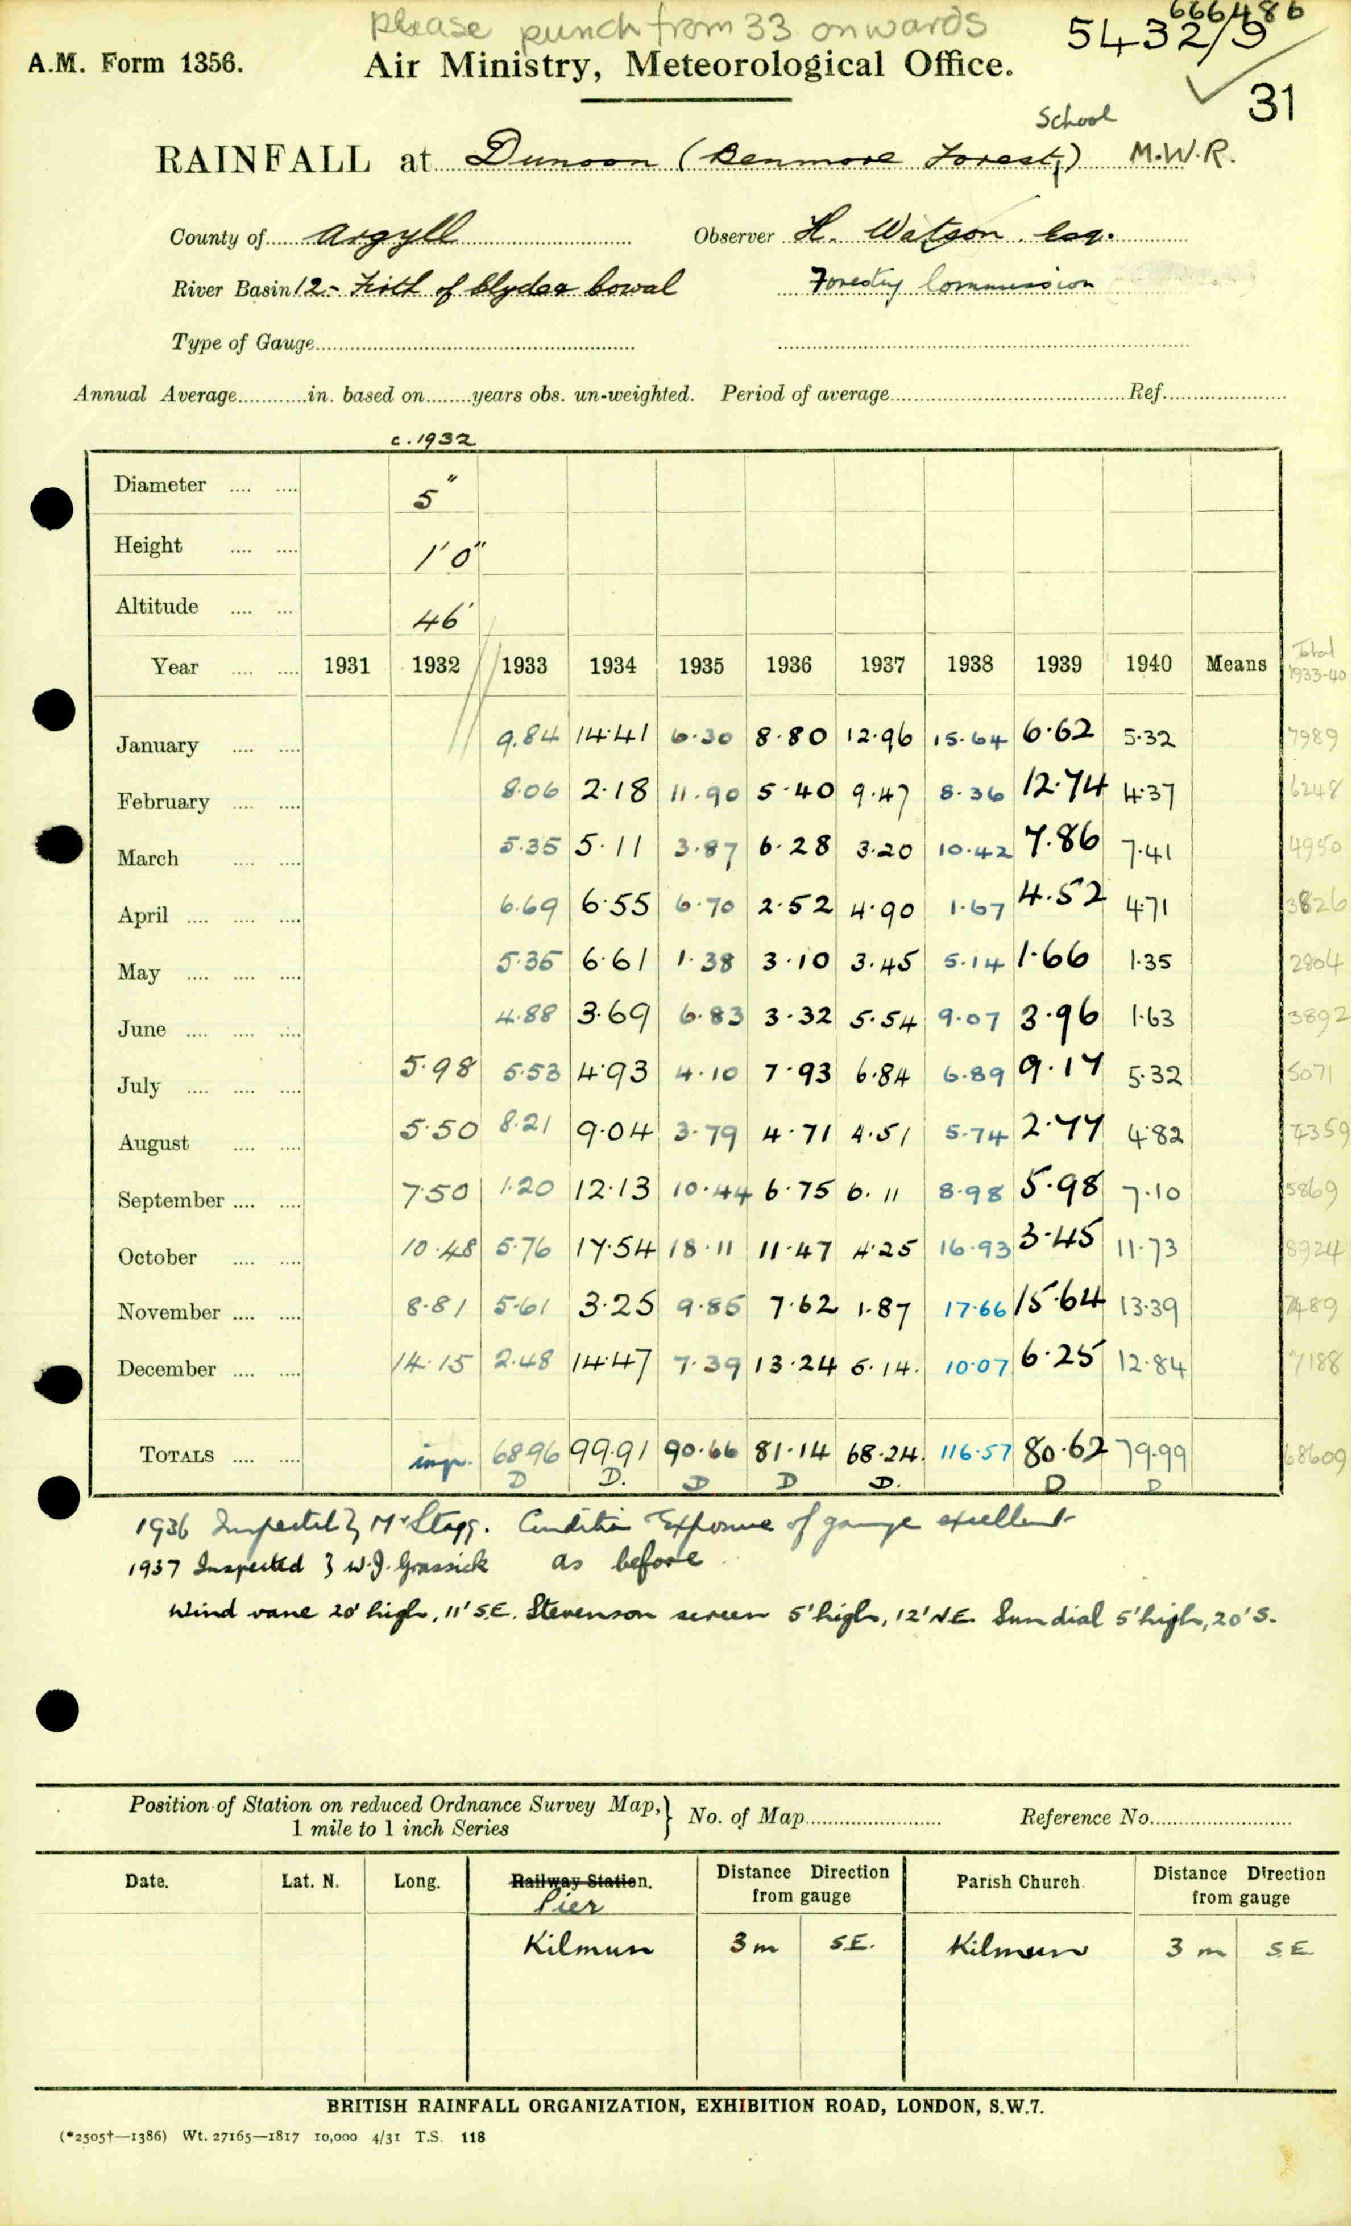 Please punch from 33 onwards
666486
5432/9
A.M. Form 1356.
Air Ministry, Meteorological Office.
31
School
RAINFALL at Dunoon (Benmore Forest) M.W.R.
County of Argyll Observer H. Watson Esq.
River Basin 12 - Firth of Clyde & Cowal Forestry Commission
Type of Gauge
Annual Average in. based on years obs. un-weighted. Period of average Ref.
c.1932
Diameter 5"
Height 1'0"
Altitude 46'
Year 1931 1932 1933 1934 1935 1936 1937 1938 1939 1940 Means Total 1933-40
January 9.84 14.41 6.30 8.80 12.96 15.64 6.62 5.32 7989
February 8.06 2.18 11.90 5.40 9.47 8.36 12.74 4.37 6248
March 5.35 5.11 3.87 6.28 3.20 10.42 7.86 7.41 4950
April 6.69 6.55 6.70 2.52 4.90 1.67 4.52 4.71 3826
May 5.35 6.61 1.38 3.10 3.45 5.14 1.66 1.35 2804
June 4.88 3.69 6.83 3.32 5.54 9.07 3.96 1.63 3892
July 5.98 5.53 4.93 4.10 7.93 6.84 6.89 9.17 5.32 5071
August 5.50 8.21 9.04 3.79 4.71 4.51 5.74 2.77 4.82 4359
September 7.50 1.20 12.13 10.44 6.75 6.11 8.98 5.98 7.10 5869
October 10.48 5.76 17.54 18.11 11.47 4.25 16.93 3.45 11.73 8924
November 8.81 5.61 3.25 9.85 7.62 1.87 17.66 15.64 13.39 7489
December 14.15 2.48 14.47 7.39 13.24 5.14 10.07 6.25 12.84 7188
TOTALS imp. 68.96 99.91 90.66 81.14 68.24 116.57 80.62 79.99 68609
D D. D D D. D D
1936 Inspected by Mr Stagg. Condition & Exposure of gauge excellent
1937 Inspected by W.J. Grassick as before
Wind vane 20' high, 11' S.E. Stevenson screen 5' high, 12' N.E. Sun dial 5' high, 20' S.
Position of Station on reduced Ordnance Survey Map, 1 mile to 1 inch Series } No. of Map Reference No.
Date. Lat. N. Long. Railway Station. Distance Direction from gauge Parish Church. Distance Direction from gauge
Pier
Kilmun 3 m S.E. Kilmun 3 m S.E.
BRITISH RAINFALL ORGANIZATION, EXHIBITION ROAD, LONDON, S.W.7.
(*2505†—1386) Wt. 27165—1817 10,000 4/31 T.S. 118